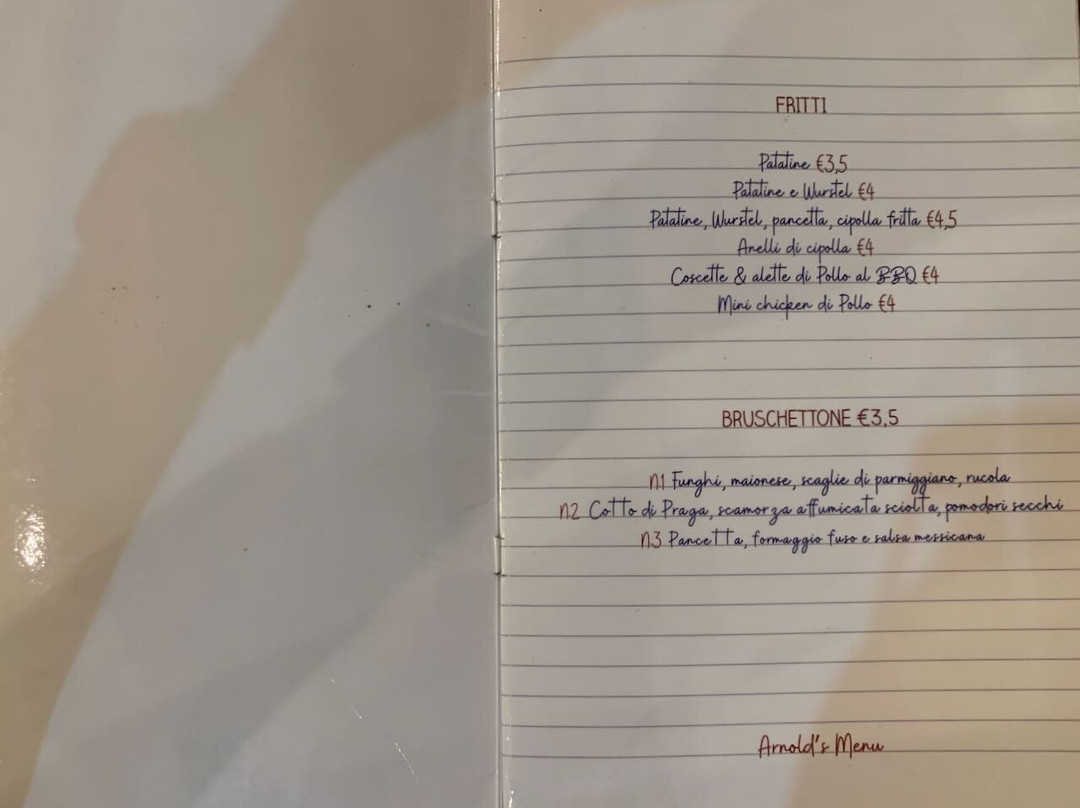 FRITTI
Patatine €3,5
Patatine e Wurstel €4
Patatine, Wurstel, pancetta, cipolla fritta €4,5
Anelli di cipolla €4
Coscette & alette di Pollo al BBQ €4
Mini chicken di Pollo €4
BRUSCHETTONE €3,5
n1 Funghi, maionese, scaglie di parmiggiano, rucola
n2 Cotto di Praga, scamorza affumicata sciolta, pomodori secchi
n3 Pancetta, formaggio fuso e salsa messicana
Arnold's Menu